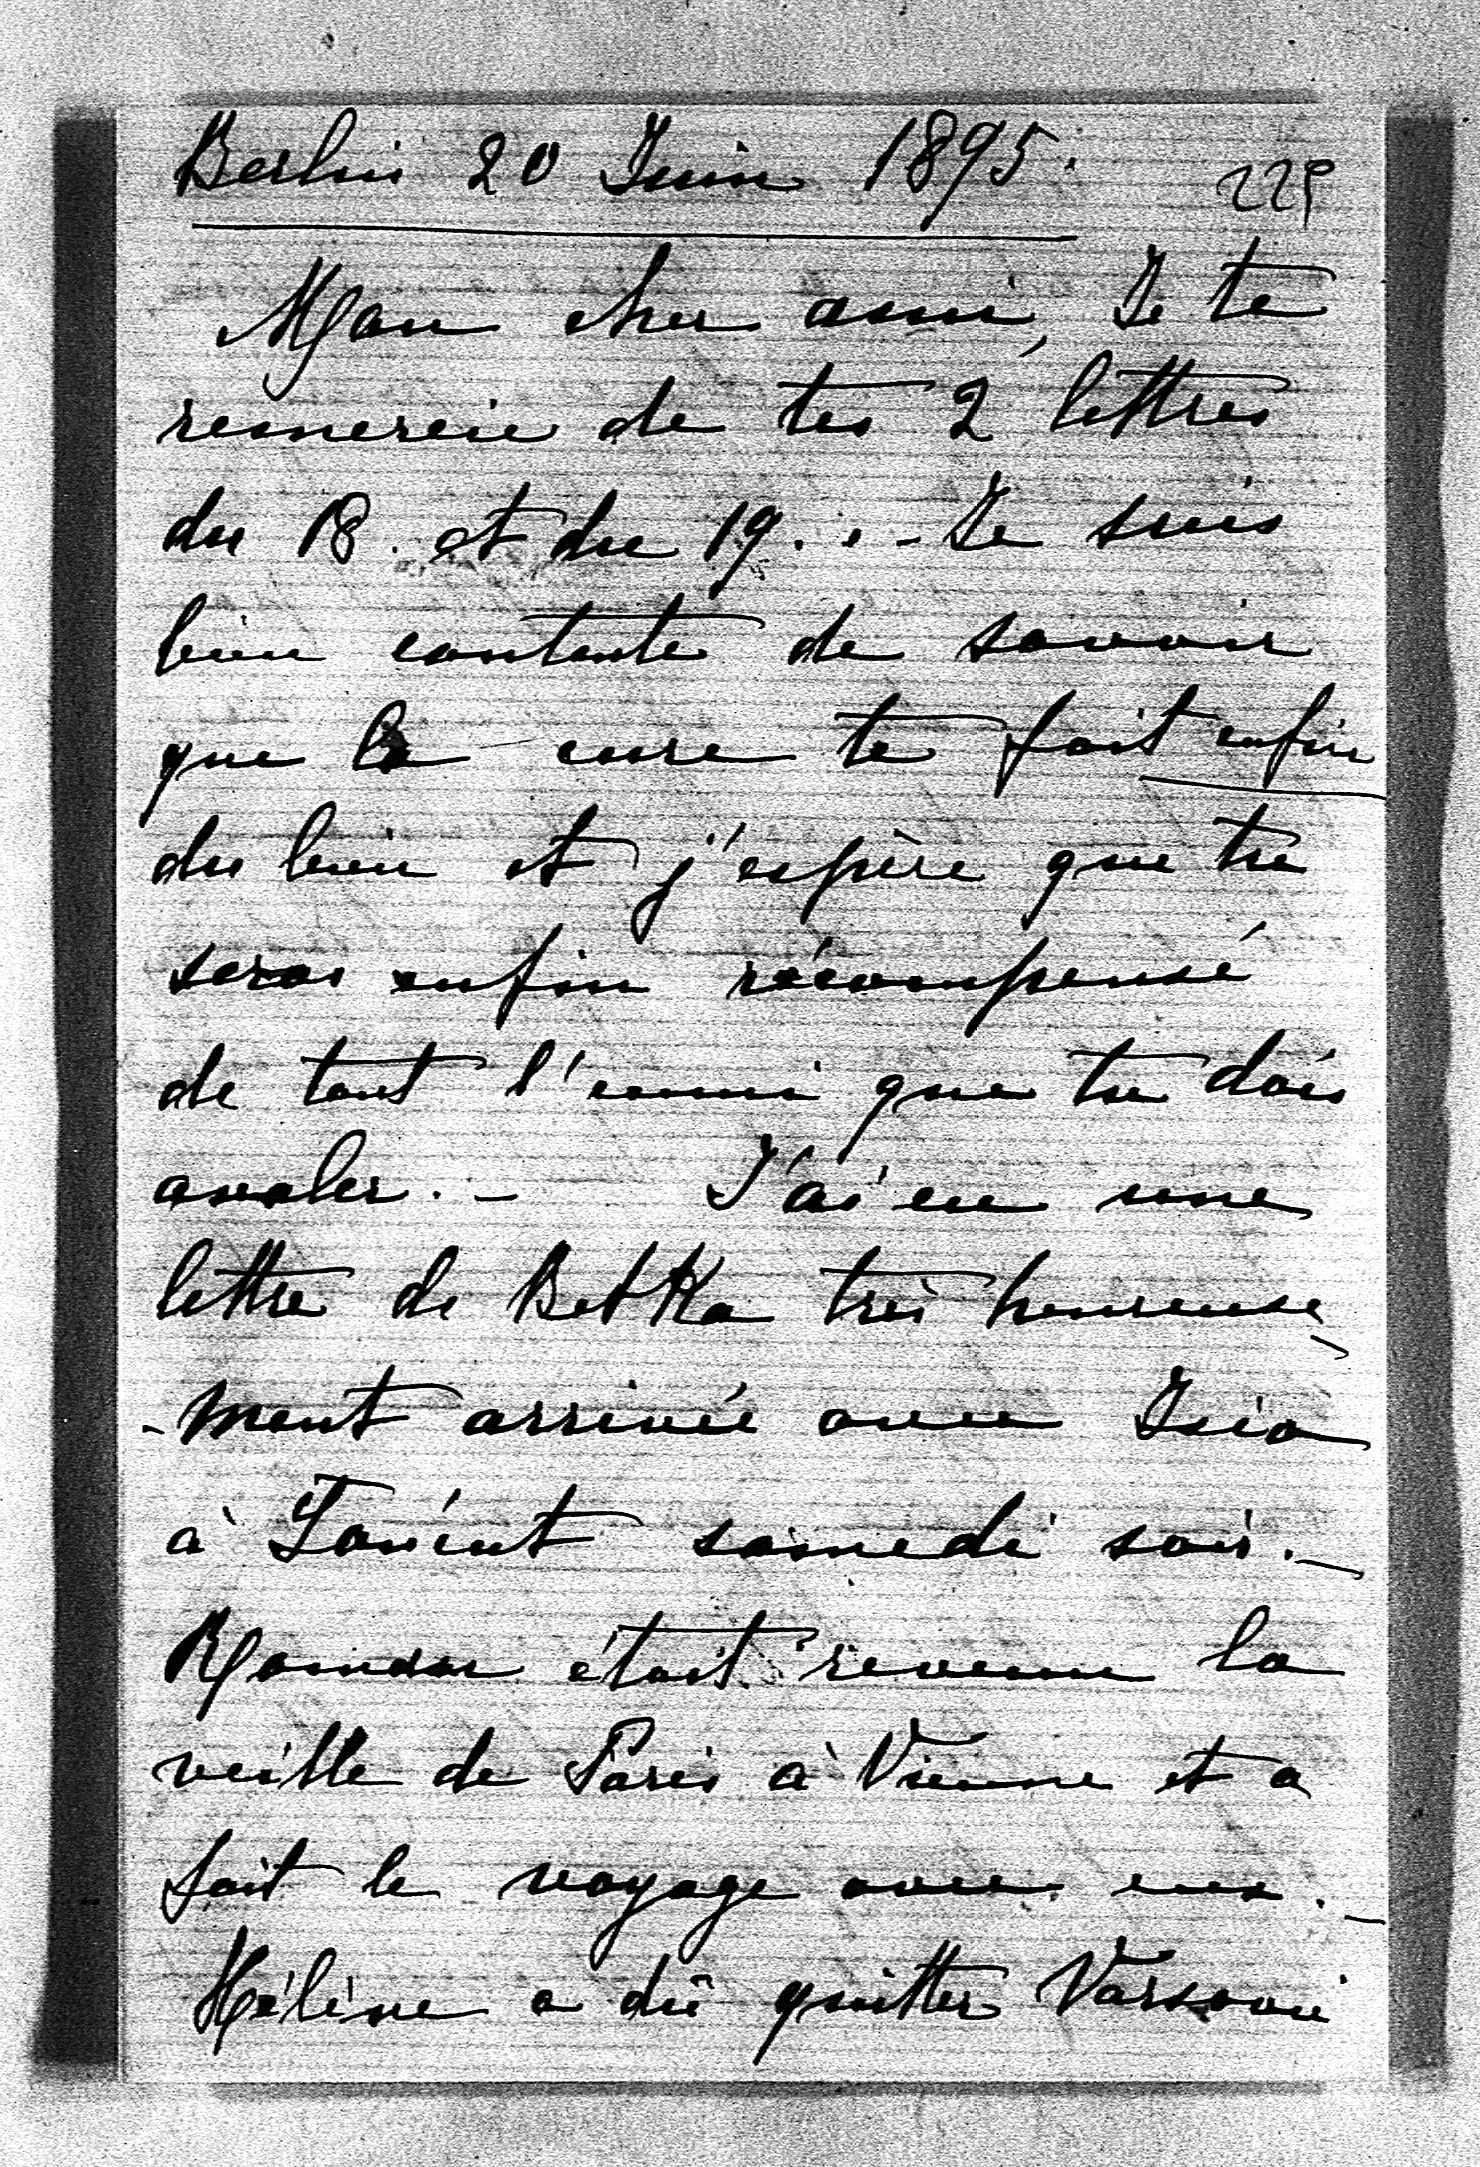 Berlin 20 Juin 1895. 229
Mon cher ami, Je te
remercie de tes 2 lettres
du 18. et du 19. . - Je suis
bien contente de savoir
que la cure te fait enfin
du bien et j'espère que tu
seras enfin récompensé
de tout l'ennui que tu dois
avaler. - J'ai eu une
lettre de Betka très heureuse
-ment arrivée avec Isia
à samedi soir. -
était revenu la
veille de Paris à Vienne et a
fait le voyage avec eux. -
Hélène a dû quitter Varsovie